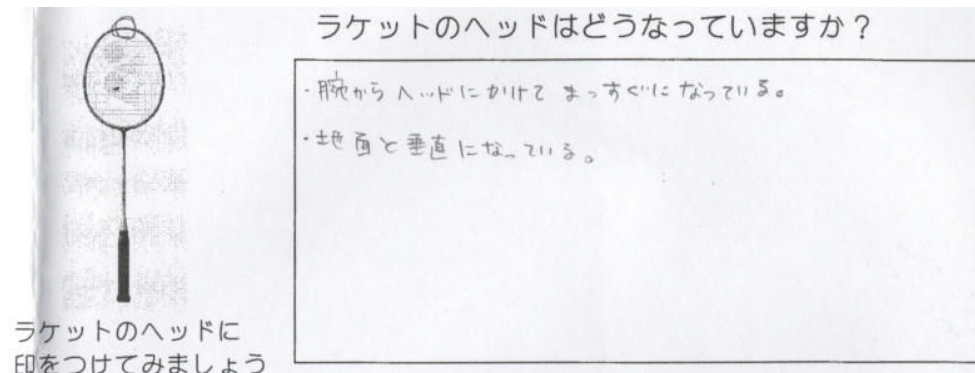 ラケットのヘッドはどうなっていますか?
・腕からヘッドにかけてまっすぐになっている。
・地面と垂直になっている。
ラケットのヘッドに
印をつけてみましょう